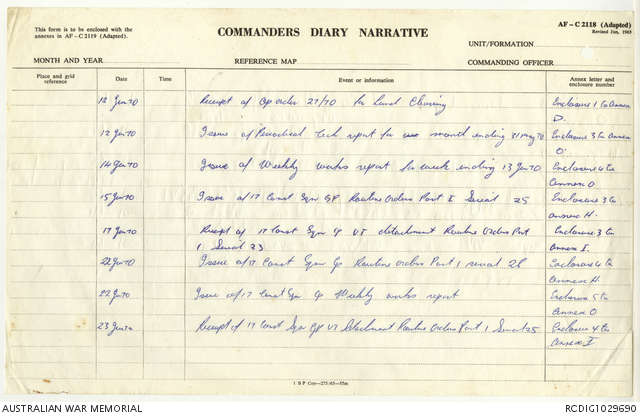 This form is to be enclosed with the
annexes in AF – C 2119 (Adapted).
COMMANDERS DIARY NARRATIVE
AF – C 2118 (Adapted)
Revised Jan, 1965
UNIT/FORMATION
MONTH AND YEAR
REFERENCE MAP
COMMANDING OFFICER
Place and grid
reference
Date
Time
Event or information
Annex letter and
enclosure number
12 Jun 70 Receipt of Op order 27/70 for Land Clearing Enclosure 1 to Annex
D.
12 Jun 70 Issue of Periodical Tech report for month ending 31 May 70 Enclosure 3 to Annex
O.
14 Jun 70 Issue of Weekly works report for week ending 13 Jun 70 Enclosure 4 to
Annex O
15 Jun 70 Issue of 17 Const Sqn Gp Routine Orders Part 1 Serial 25 Enclosure 3 to
Annex H.
17 Jun 70 Receipt of 17 Const Sqn Gp VT detachment Routine Orders Part Enclosure 3 to
1 Serial 23 Annex I.
22 Jun 70 Issue of 17 Const Sqn Gp Routine Orders Part 1 serial 26 Enclosure 4 to
Annex H.
22 Jun 70 Issue of 17 Const Sqn Gp Weekly works report Enclosure 5 to
Annex O
23 Jun 70 Receipt of 17 Const Sqn Gp VT Detachment Routine Orders Part 1 Serial 25 Enclosure 4 to
Annex I
AUSTRALIAN WAR MEMORIAL
RCDIG1029690